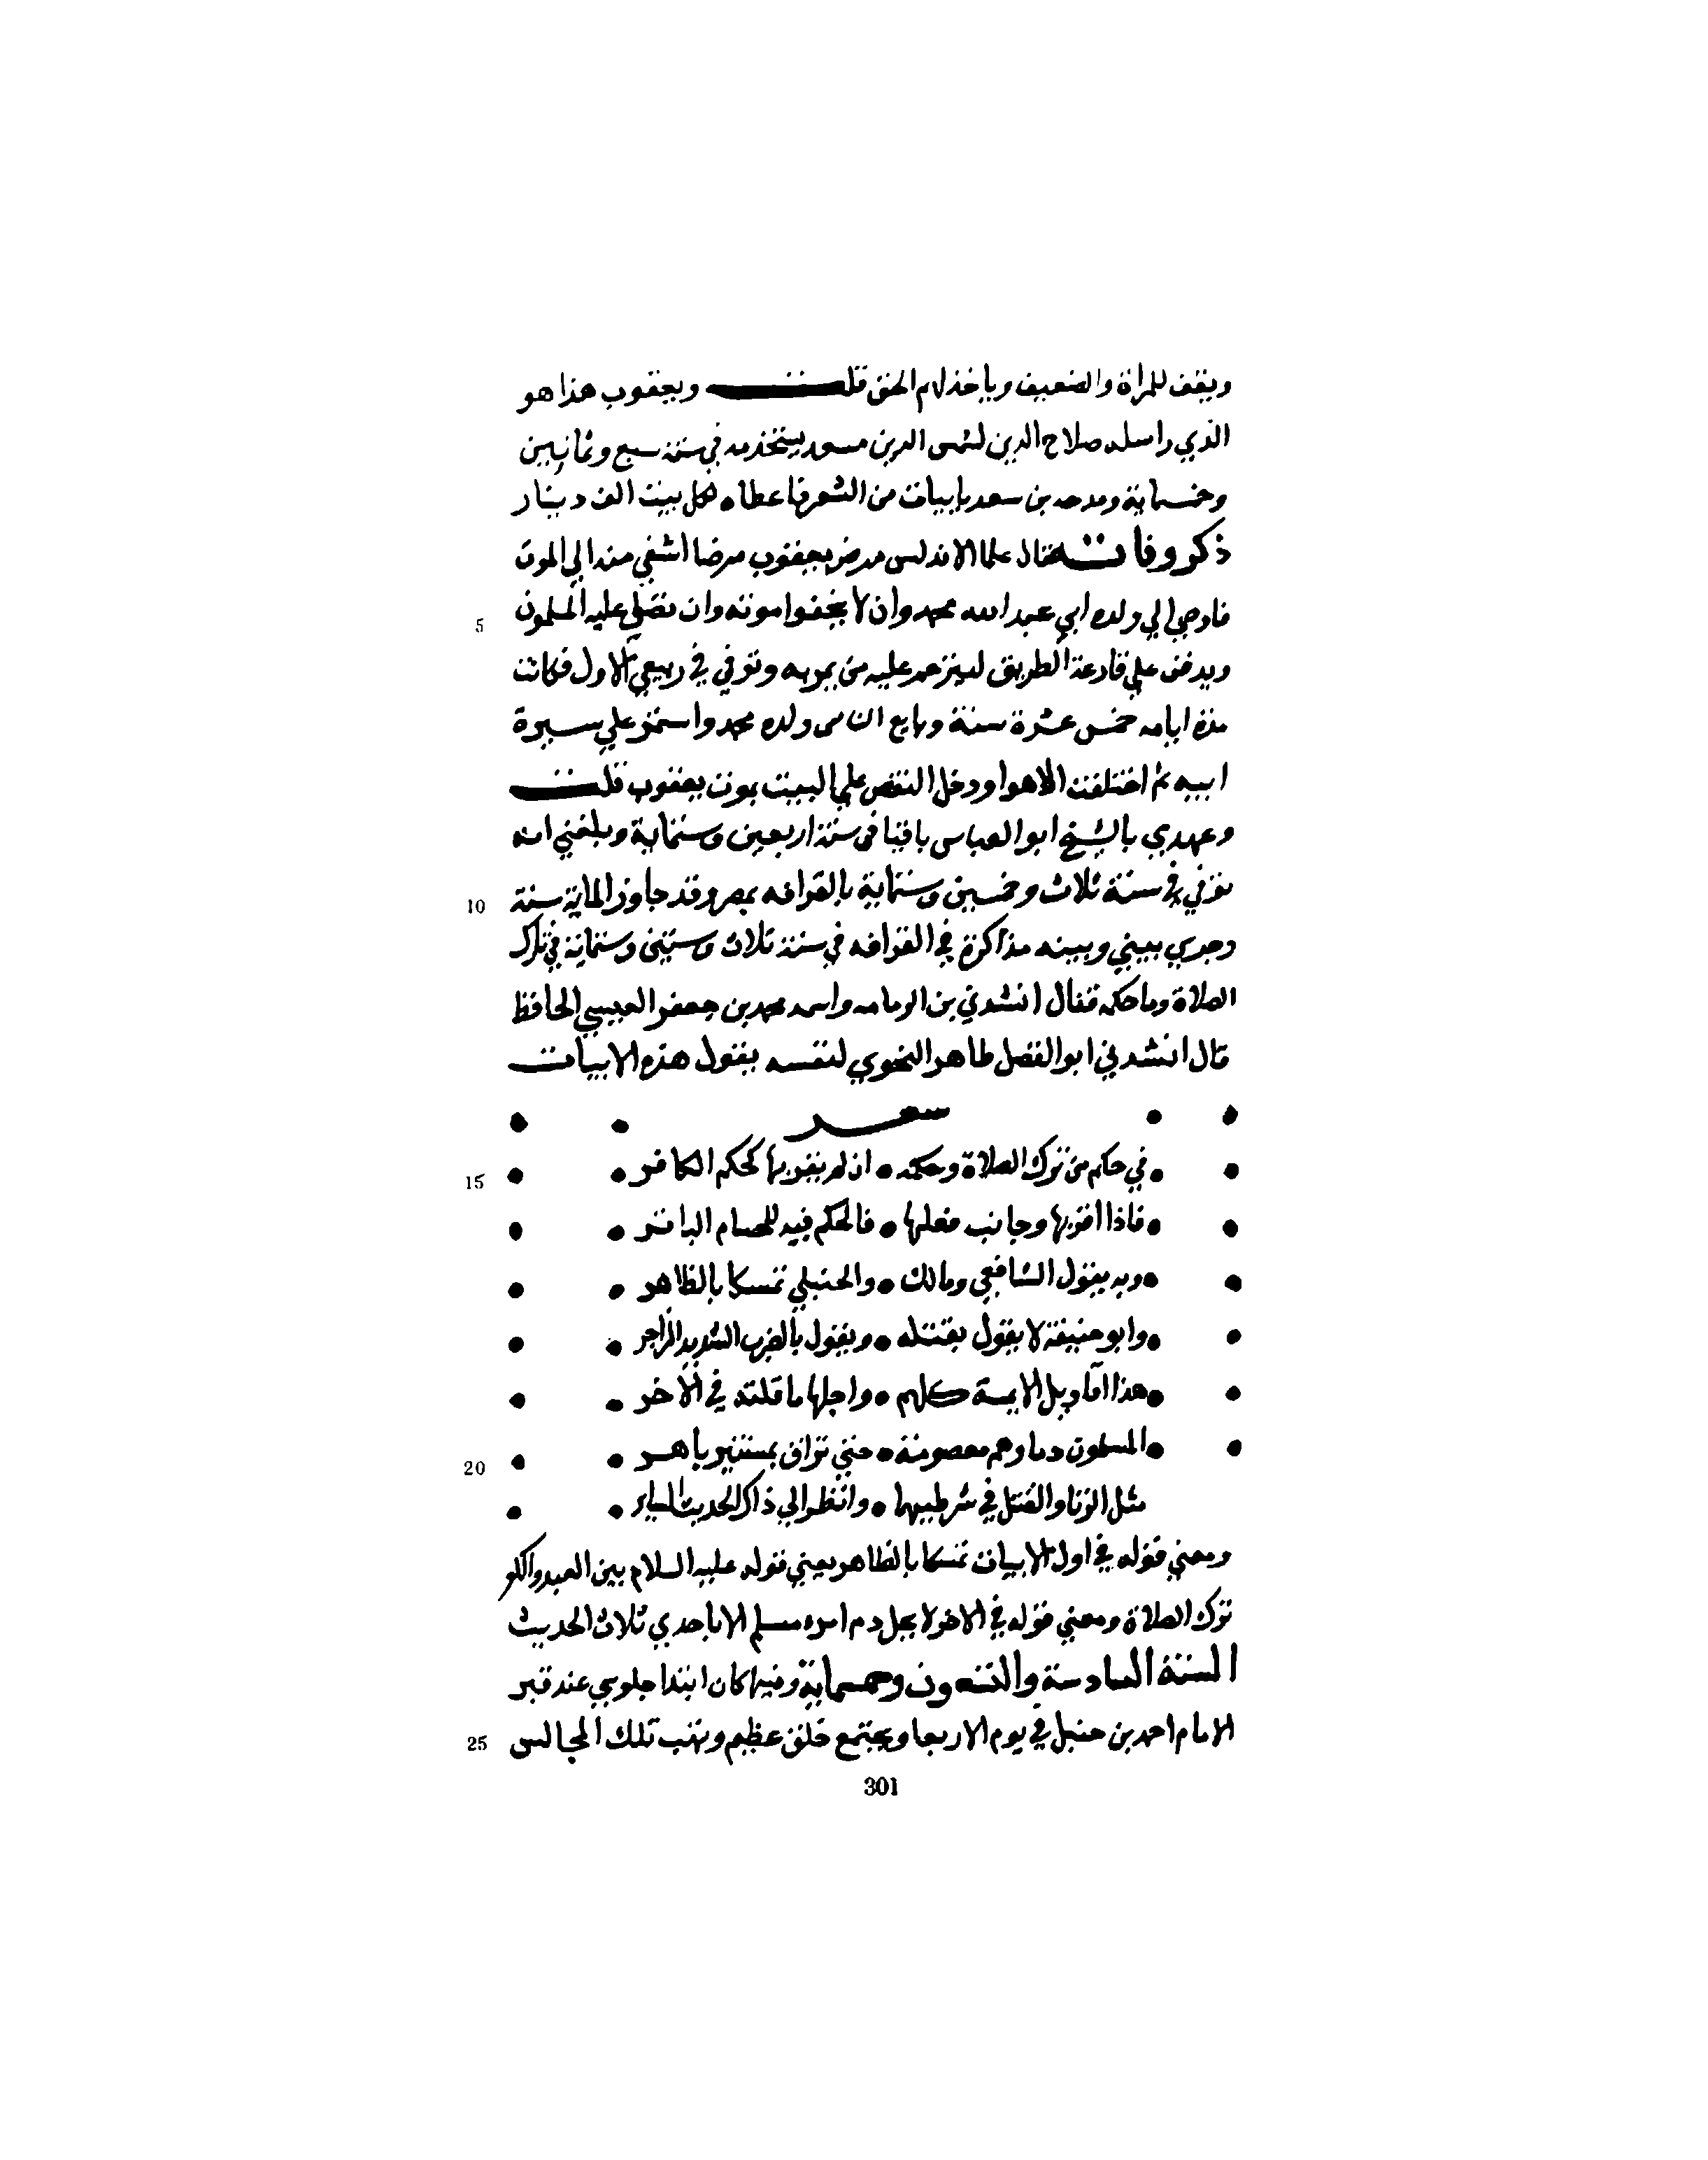 ويقف للمراة والضعيف وياخذ لهم الحق قلت ويعقوب هذا هو
الذي راسله صلاح الدين لشمس الدين مسعد يستخدمه في سنة سبع وثمانيين
وخسماية ومدحه بن سعد بابيات من الشعر فاعطاه لكل بيت الف دينار
ذكر وفاته قال علما الاندلس مرض يعقوب مرضا اشفي منه الي الموت
5 فاوصي الي ولده ابي عبد الله محمد وان لا يخفوا موته وان تصلي عليه المسلمون
ويدفن علي قارعة الطريق ليترحم عليه من يمر به وتوفي في ربيع الاول فكانت
مدة ايامه خمس عشرة سنة وبايع الناس ولده محمد واستمر علي سيرة
ابيه ثم اختلفت الاهوا ودخل النقص علي البيت بموت يعقوب قلت
وعهدي بالشيخ ابو العباس باقيا في سنة اربعين وستماية وبلغني انه
10 توفي في سنة ثلاث وخمسين وستماية بالقرافه بمصر وقد جاوز الماية سنة
وجري بيني وبينه مذاكرة في القرافه في سنة ثلاث وستين وستماية في ترك
الصلاة وما حكمه فقال انشدني بن الرمامه واسمه محمد بن جعفر العبسي الحافظ
قال انشدني ابو الفضل طاهر النحوي لنفسه يقول هذه الابيات
شعر
15 في حكم من ترك الصلاة وحكمه • ان لم يقر بها كحكم الكافر •
• فاذا اقر بها وجانب فعلها • فالحكم فيه للحسام الباتر •
• وبه يقول الشافعي ومالك • والحنبلي تمسكا بالظاهر •
• وابو حنيفة لا يقول بقتله • ويقول بالضرب الشديد الزاجر •
• هذا اقاويل الايمة كلهم • واجلها ما قلته في الاخر •
20 • المسلمون دماوهم معصومة • حتي تراق بمستنير باهر •
مثل الزنا والقتل في شرطيهما • وانظر الي ذاك الحديث الساير •
ومعني قوله في اول الابيات تمسكا بالظاهر يعني قوله عليه السلام بين العبد والكفر
ترك الصلاة ومعني قوله في الاخر لا يحل دم امره مسلم الا باحدي ثلاث الحديث
السنة السادسة والتسعون وخمسماية وفيها كان ابتدا جلوسي عند قبر
25 الامام احمد بن حنبل في يوم الاربعا ويجتمع خلق عظيم وتهب تلك المجالس
301